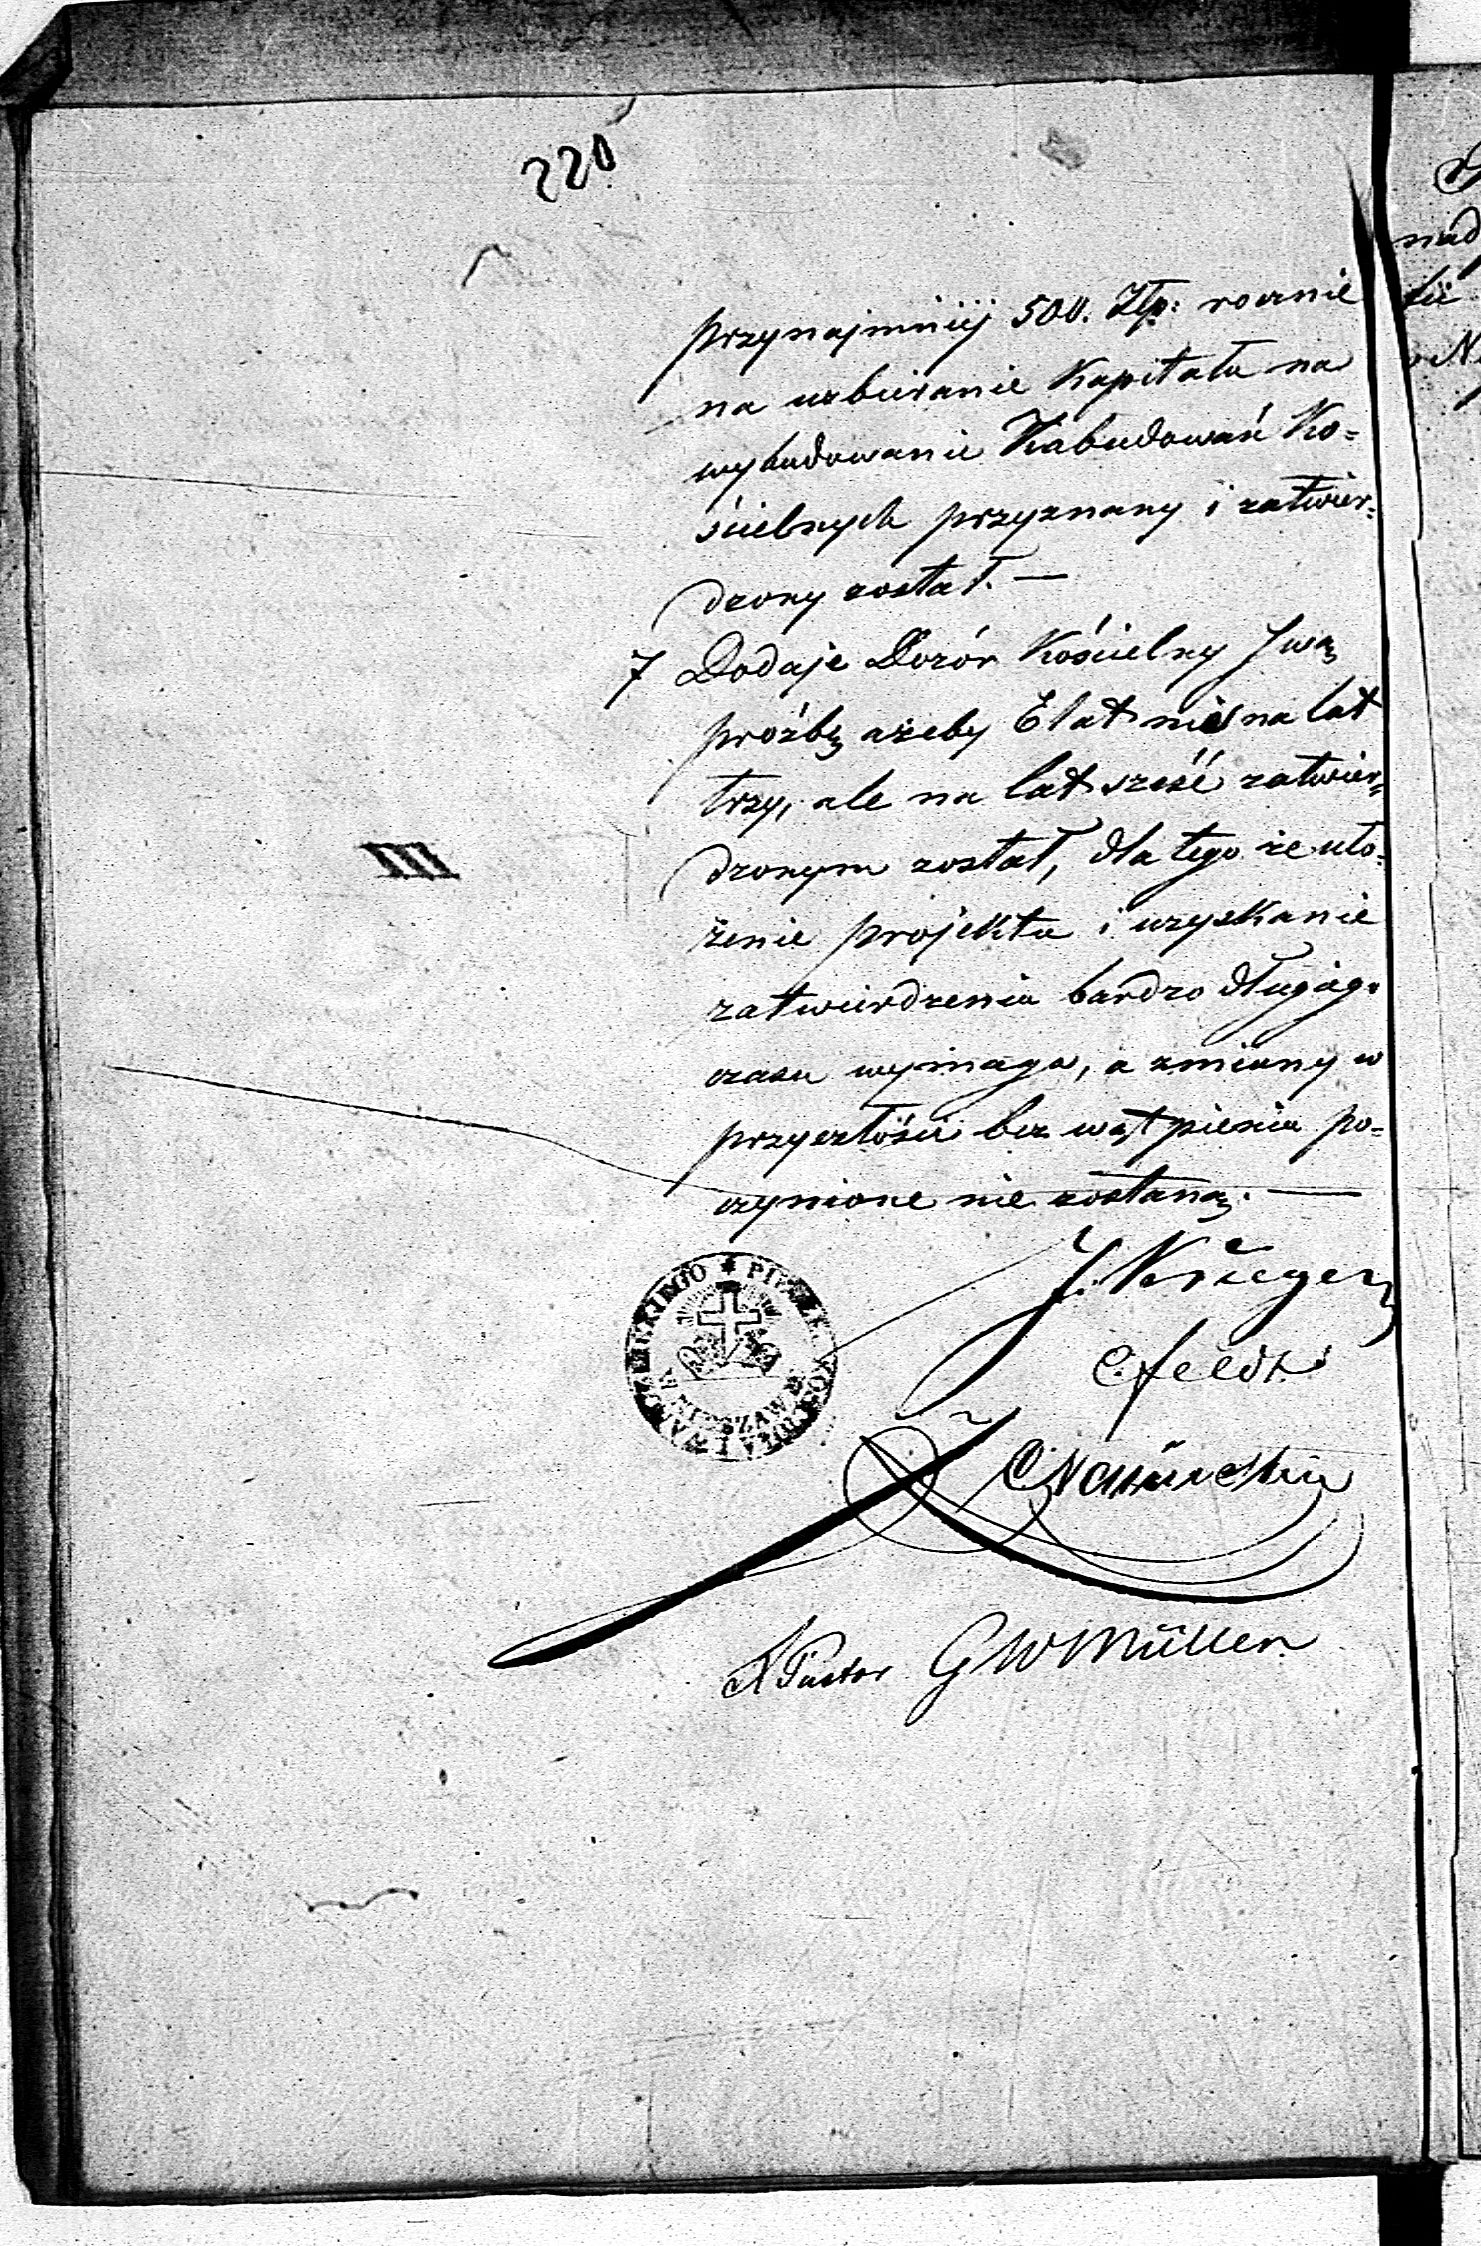 220
przynajmniéj 500. Złp: rocznie
na uzbieranie Kapitału na
wybudowanie Zabudowań Ko=
ścielnych przyznany i zatwier=
dzony został. —
7 Dodaje Dozór Kościelny Swą
proźbę ażeby Etat nie na lat
trzy, ale na lat sześć zatwier=
dzonym został, dla tego że uło=
żenie projektu i uzyskanie
zatwierdzenia bardzo długiego
czasu wymaga, a zmiany w
przyszłości bez wątpienia po=
czynione nie zostaną. —
J. Krüger
C. feldt
PIECZĘĆ KOŚCIOŁA
W NIESZAWIE
Pastor GWMüller